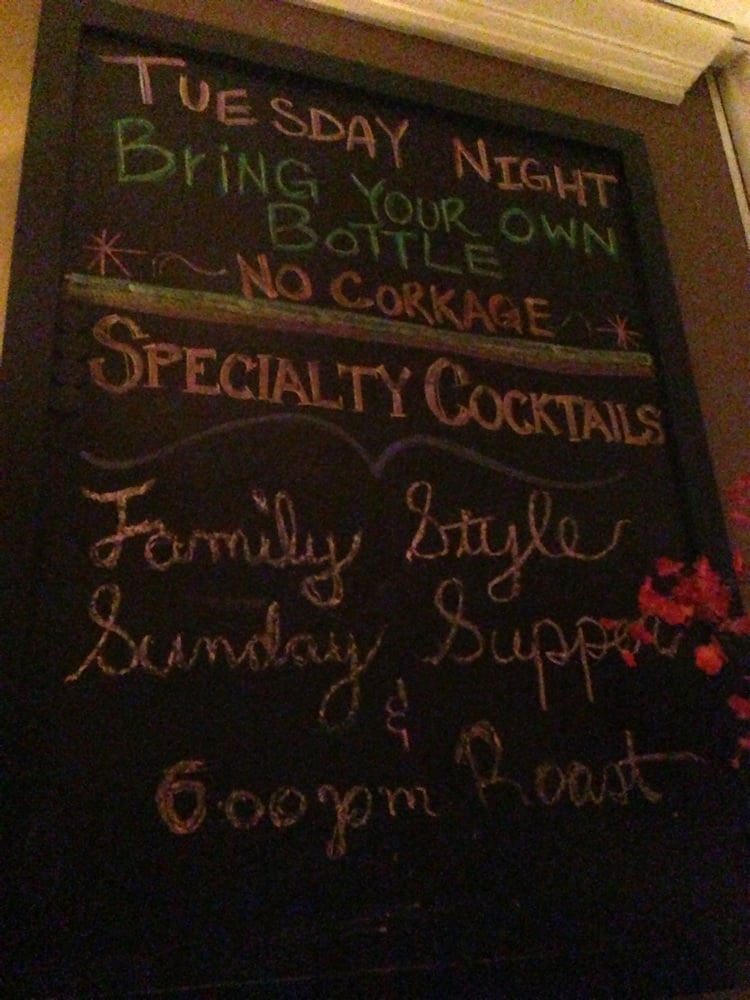 TUESDAY NIGHT
BriNG YOUR OWN
BOTTLE
NO CORKAGE
SPECIALTY COCKTAILS
Family Style
Sunday Supper
&
6:00pm Roast